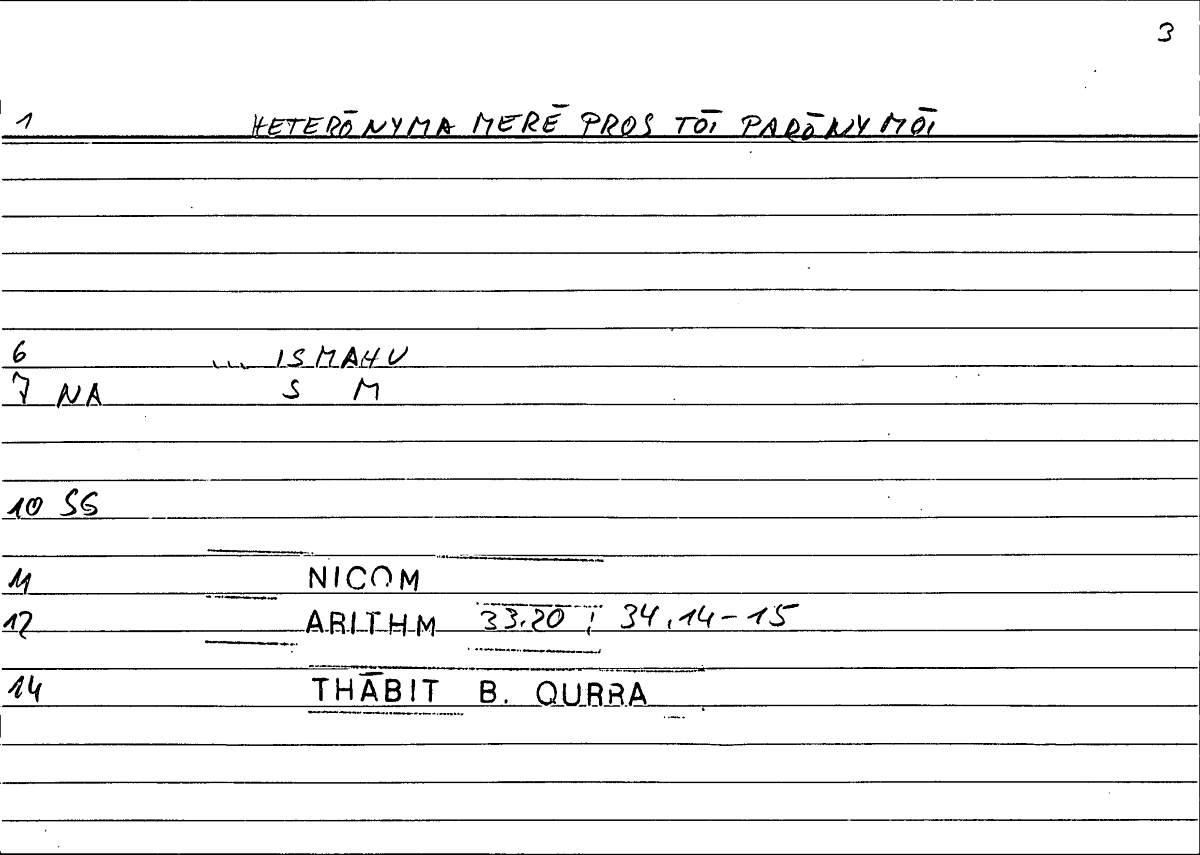 3
1 HETERŌNYMA MERĒ PROS TŌI PARŌNYMŌI
6 ... ISMAHU
7 NA S M
10 SG
11 NICOM
12 ARITHM 33.20 ; 34.14-15
14 THĀBIT B. QURRA